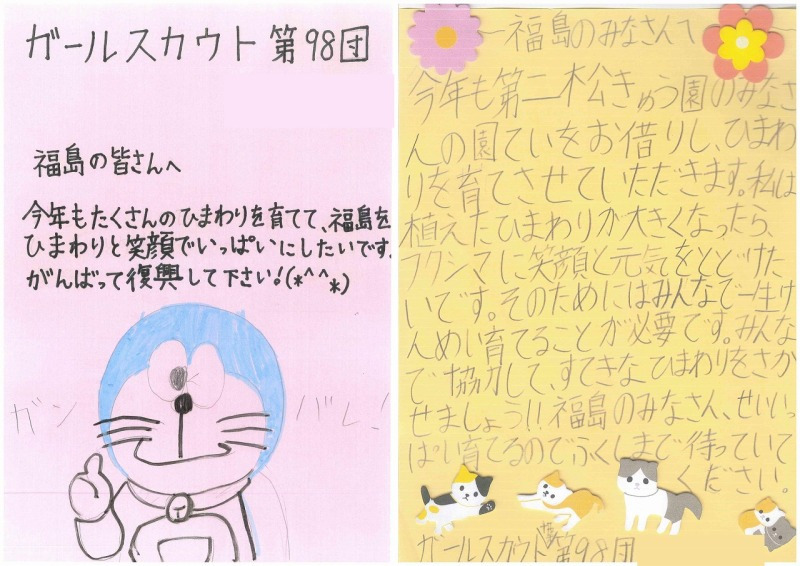 ガールスカウト第98団
福島の皆さんへ
今年もたくさんのひまわりを育てて、福島を
ひまわりと笑顔でいっぱいにしたいです。
がんばって復興して下さい!(*^^*)
ガン バレ!
〜福島のみなさんへ
今年も第二松きゅう園のみなさ
んの園ていをお借りし、ひまわ
りを育てさせていただきます。私は
植えたひまわりが大きくなったら、
フクシマに笑顔と元気をとどけた
いです。そのためにはみんなで一生け
んめい育てることが必要です。みんな
で協力して、すてきなひまわりをさか
せましょう!!福島のみなさん、せいいっ
ぱい育てるのでふくしまで待っていて
ください。
ガールスカウト第98団